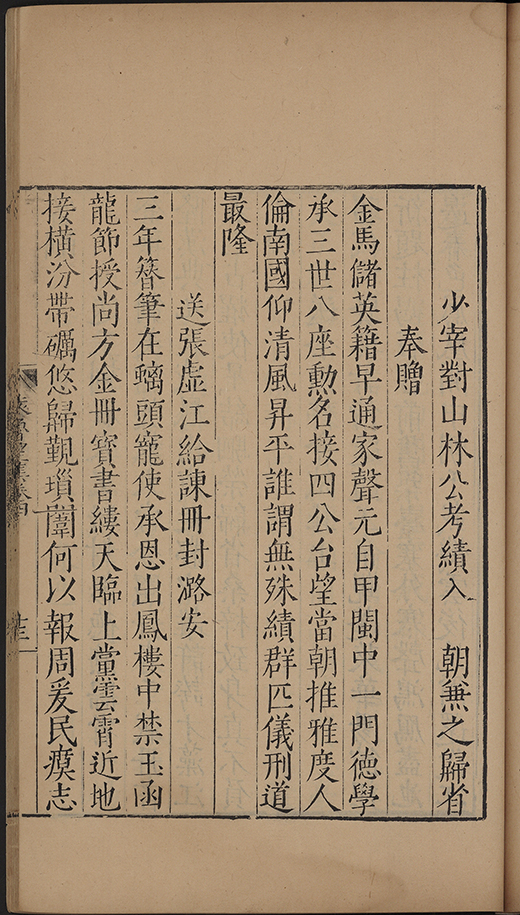 少宰對山林公考績入　朝兼之歸省
奉贈
金馬儲英籍早通家聲元自甲閩中一門德學
承三世八座勳名接四公台望當朝推雅度人
倫南國仰清風昇平誰謂無殊績群匹儀刑道
最隆
送張虛江給諫冊封潞安
三年簪筆在螭頭寵使承恩出鳳樓中禁玉函
龍節授尚方金冊寶書縷天臨上黨雲霄近地
接橫汾帶礪悠歸覲瑣闈何以報周爰民瘼志